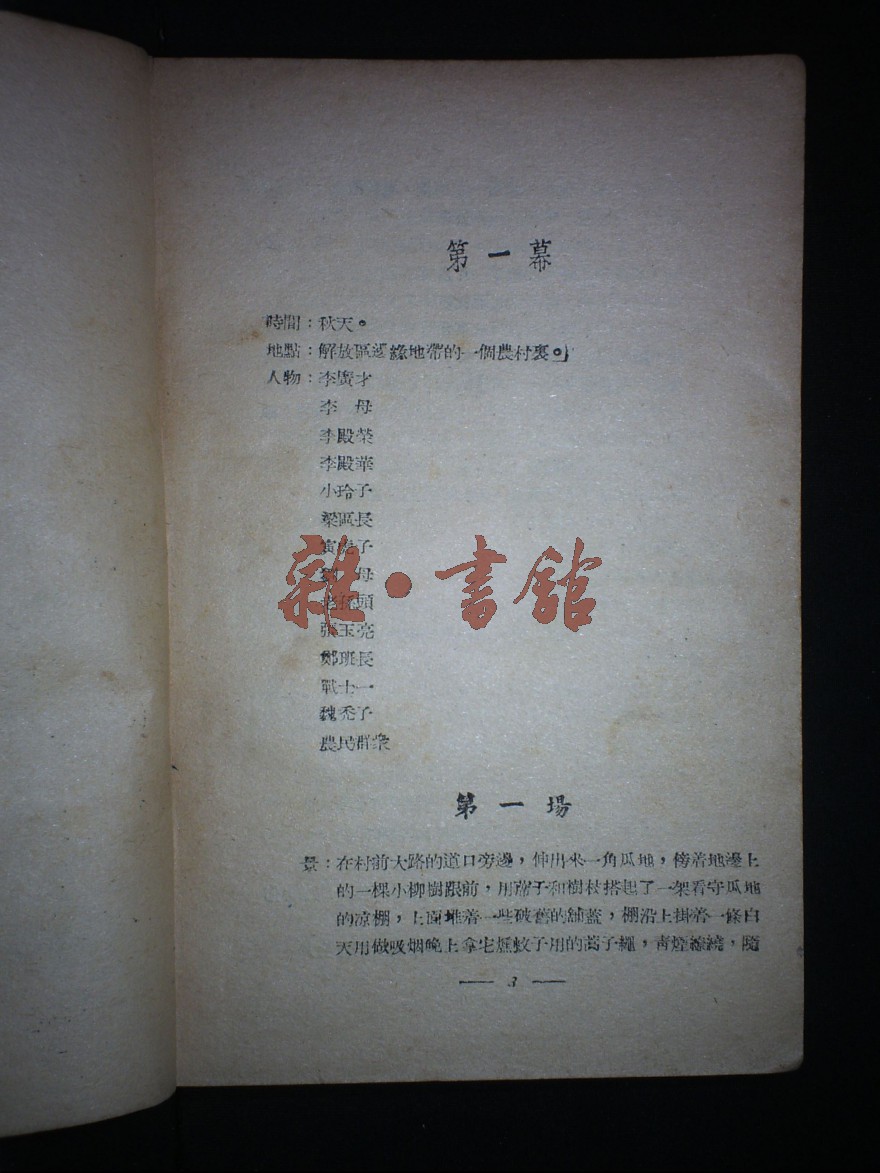 第一幕
時間：秋天。
地點：解放區邊緣地帶的一個農村裏。
人物：李廣才
李　母
李殿榮
李殿華
小玲子
梁區長
寅虎子
劉　母
老孫頭
張玉亮
鄭班長
戰士一
魏禿子
農民群衆
雜·書館
第一場
景：在村前大路的道口旁邊，伸出來一角瓜地，傍着地邊上
的一棵小柳樹跟前，用蓆子和樹枝搭起了一架看守瓜地
的凉棚，上面堆着一些破舊的舖蓋，棚沿上掛着一條白
天用做吸烟晚上拿它燻蚊子用的蒿子繩，靑煙繚繞，隨
— 3 —